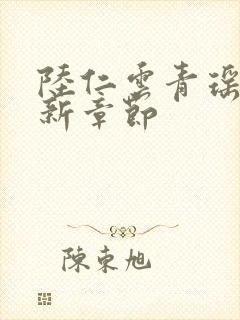 陸仁雲青瑶
新章節
陳東旭